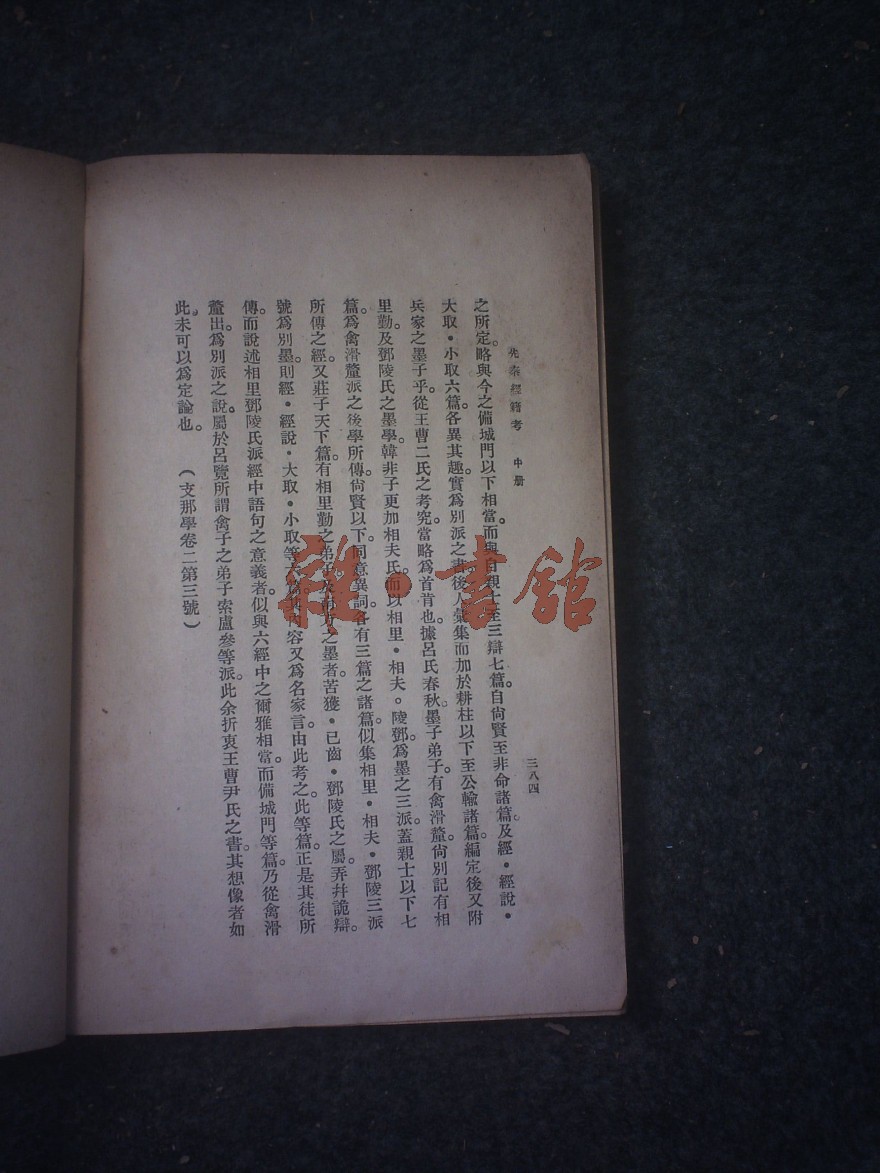 先秦經籍考　中册
三八四
之所定。略與今之備城門以下相當。而與自親士至三辯七篇。自尙賢至非命諸篇。及經·經說·
大取·小取六篇。各異其趣。實爲別派之書。後人彙集而加於耕柱以下至公輸諸篇。編定後又附
兵家之墨子乎。從王曹二氏之考究。當略爲首肯也。據呂氏春秋。墨子弟子。有禽滑釐。尙別記有相
里勤。及鄧陵氏之墨學。韓非子更加相夫氏。而以相里·相夫。陵鄧。爲墨之三派。蓋親士以下七
篇。爲禽滑釐派之後學所傳。尙賢以下。同意異詞。各有三篇之諸篇。似集相里·相夫·鄧陵三派
所傳之經。又莊子天下篇。有相里勤之弟子。及南方之墨者。苦獲·已齒·鄧陵氏之屬。弄幷詭辯。
號爲別墨。則經·經說·大取·小取等六篇。其內容又爲名家言。由此考之。此等篇。正是其徒所
傳。而說述相里鄧陵氏派經中語句之意義者。似與六經中之爾雅相當。而備城門等篇。乃從禽滑
釐出。爲別派之說。屬於呂覽所謂禽子之弟子索盧參等派。此余折衷王曹尹氏之書。其想像者如
此。未可以爲定論也。　（支那學卷二第三號）
雜·書館